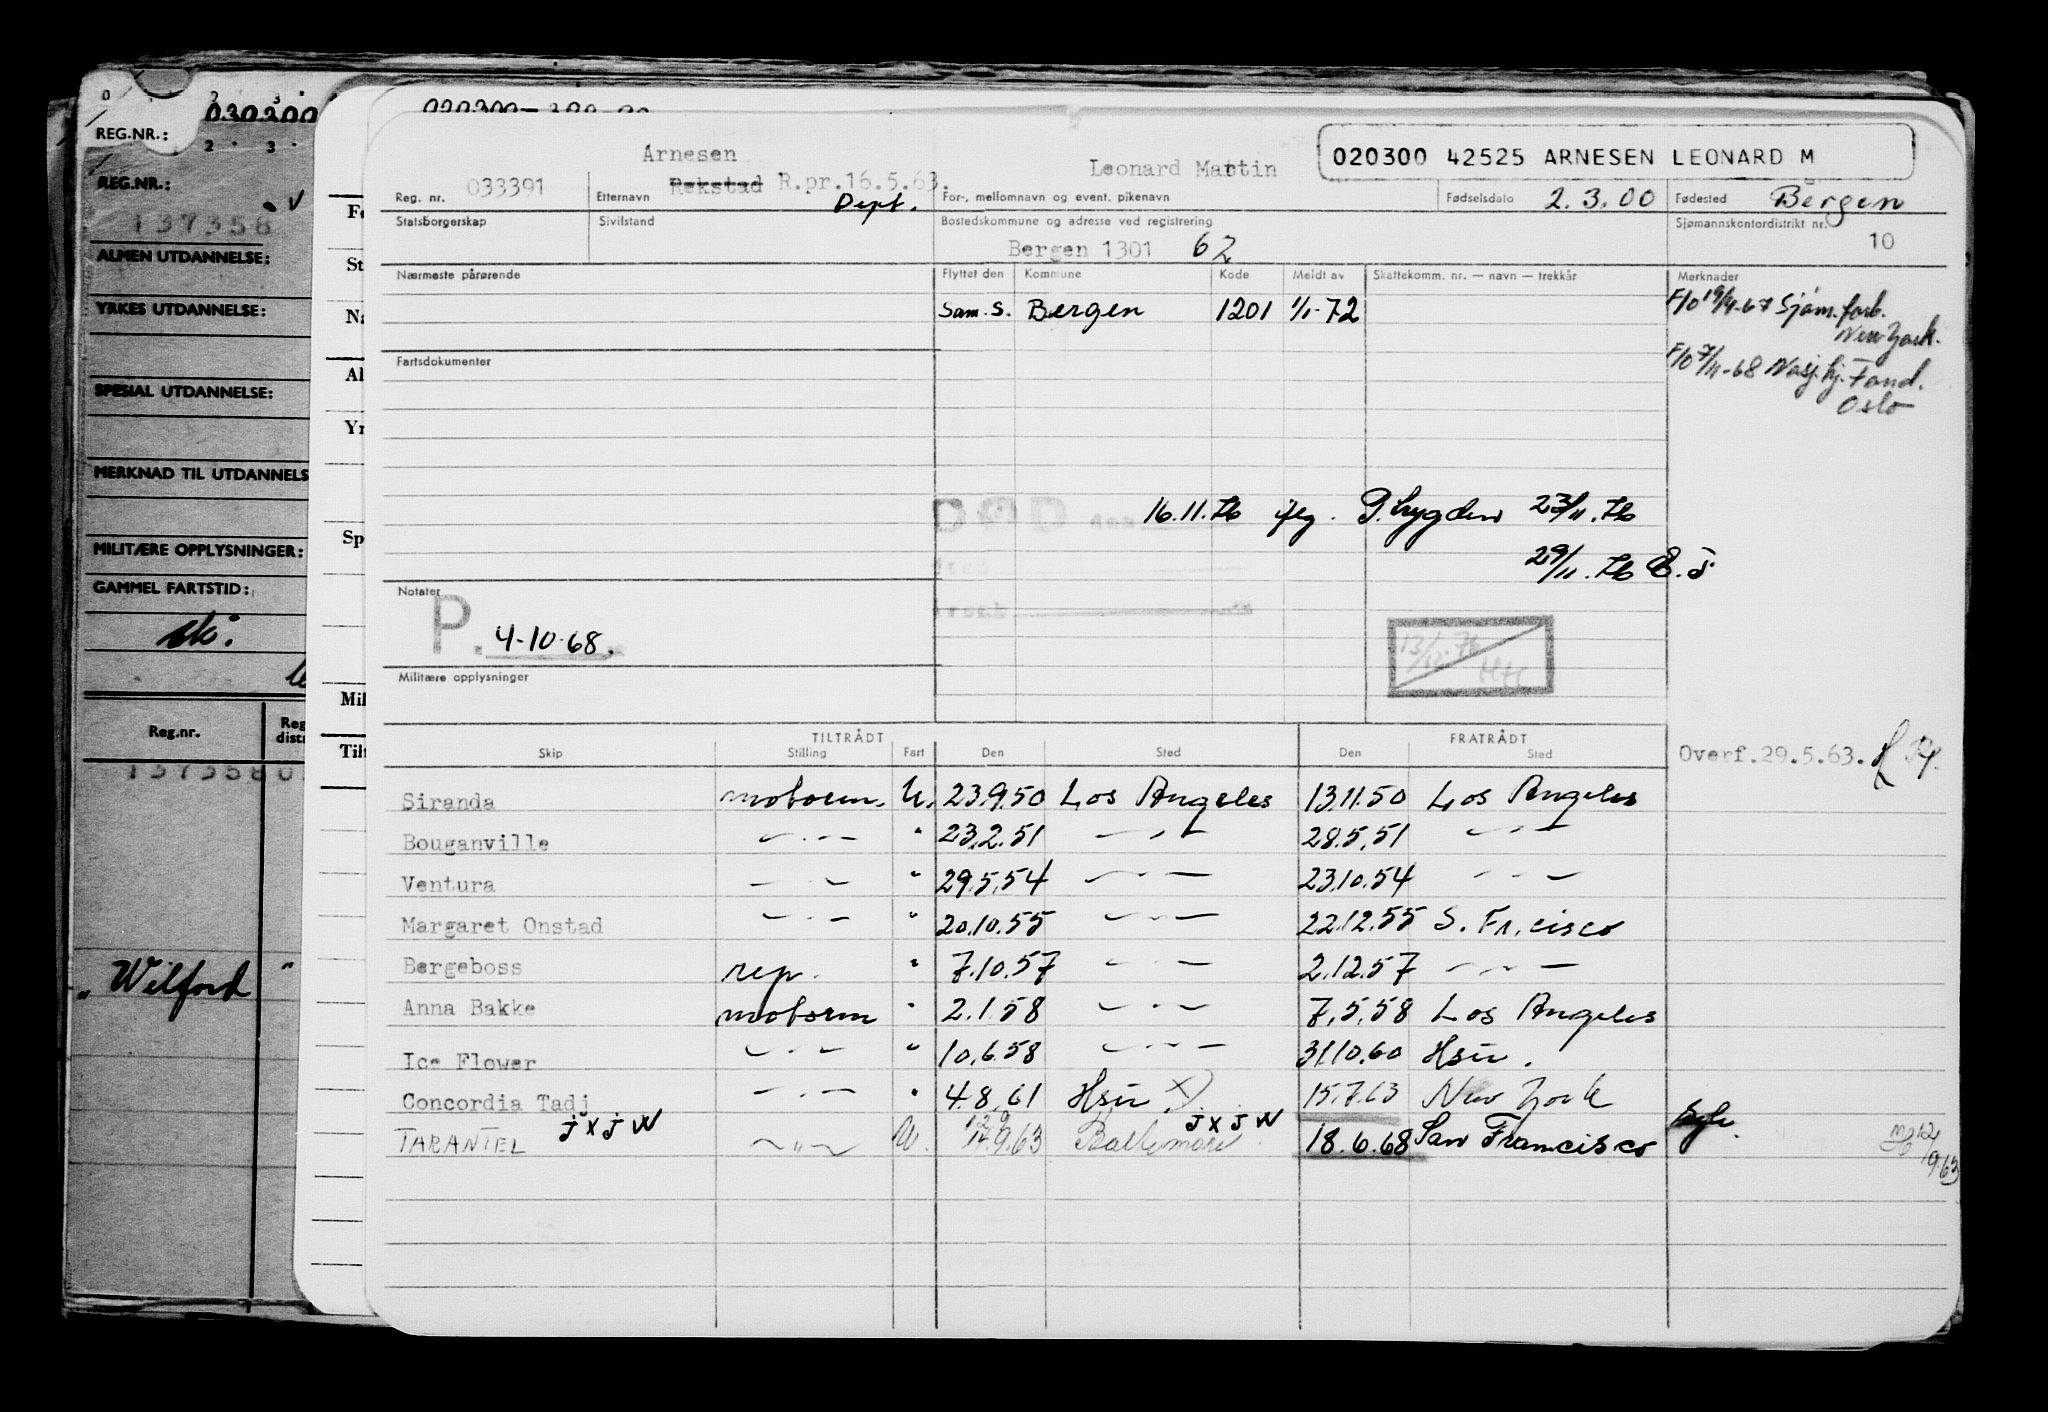 REG.NR.:
030300
REG.NR.:
137358
ALMEN UTDANNELSE:
YRKES UTDANNELSE:
SPESIAL UTDANNELSE:
MERKNAD TIL UTDANNELS
MILITÆRE OPPLYSNINGER:
GAMMEL FARTSTID:
Reg.nr.
137358
"Wilford"
020300
Arnesen
Leonard Martin
020300 42525 ARNESEN LEONARD M
Reg. nr. 033391 Etternavn Rekstad R.pr.16.5.63. Dept. For-, mellomnavn og event. pikenavn Fødselsdato 2.3.00 Fødested Bergen
Statsborgerskap Sivilstand Bostedskommune og adresse ved registrering Sjømannskontordistrikt nr.
Bergen 1301 62 10
Nærmeste pårørende Flyttet den Kommune Kode Meldt av Skattekomm. nr. — navn — trekkår Merknader
Sam.S. Bergen 1201 1/1-72
F/0 19/4-67 Sjøm.forb.
New York.
Fartsdokumenter
F/0 7/11-68
Oslo
DØD den 16.11.76 23/11.76
Sted 29/11.76
Årsak
Notater
P. 4-10-68.
Militære opplysninger
TILTRÅDT FRATRÅDT
Skip Stilling Fart Den Sted Den Sted
Overf.29.5.63.
Siranda motorm. U. 23.9.50 Los Angeles 13.11.50 Los Angeles
Bouganville —·— " 23.2.51 —·— 28.5.51 —·—
Ventura —·— " 29.5.54 —·— 23.10.54 —·—
Margaret Onstad —·— " 20.10.55 —·— 22.12.55 S. Fr.cisco
Bergeboss rep. " 7.10.57 —·— 2.12.57 —·—
Anna Bakke motorm " 2.1.58 —·— 7.5.58 Los Angeles
Ice Flower —·— " 10.6.58 —·— 31.10.60 Hsü.
Concordia Tadj —·— " 4.8.61 Hsü X) 15.7.63 New York
JXJW JXJW
TARANTEL —"— U. 9.63 Baltimore 18.6.68 San Francisco